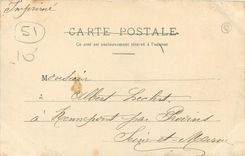 Imprimé
51
CARTE POSTALE
Ce côté est exclusivement réservé à l'adresse
Monsieur
Albert
à par Provins
Seine et Marne